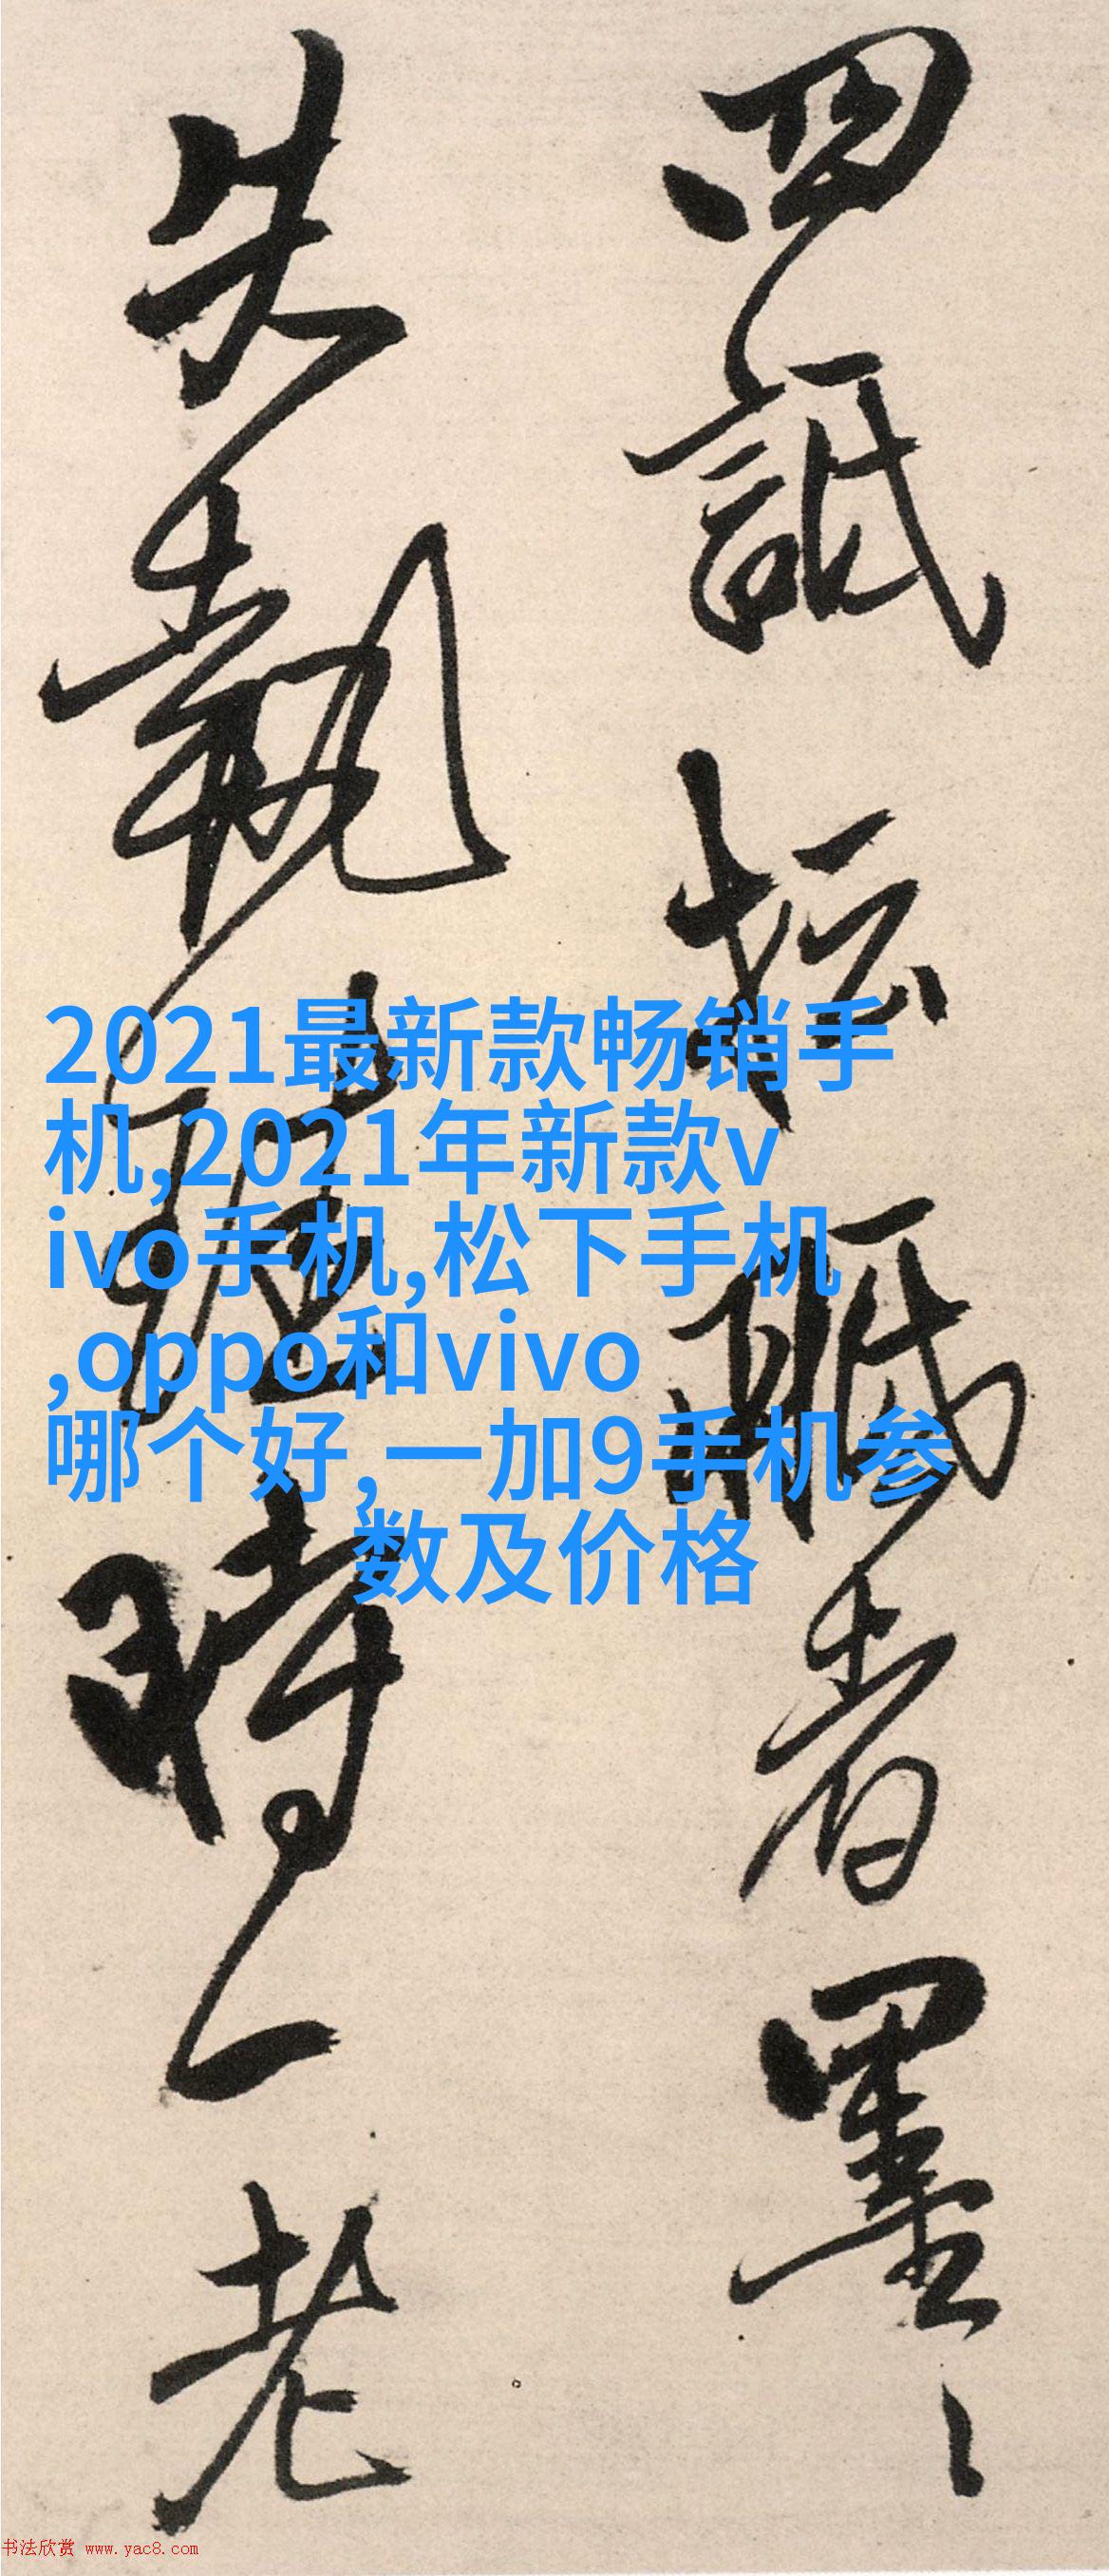 四詆者墨
失執時一老
2021最新款畅销手
机,2021年新款v
ivo手机,松下手机
,oppo和vivo
哪个好,一加9手机参
数及价格
书法欣赏 www.yac8.com